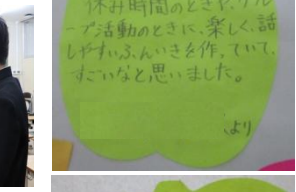 休み時間のときや、グルー
プ活動のときに、楽しく、話
しやすいふんいきを作っていて、
すごいなと思いました。
より